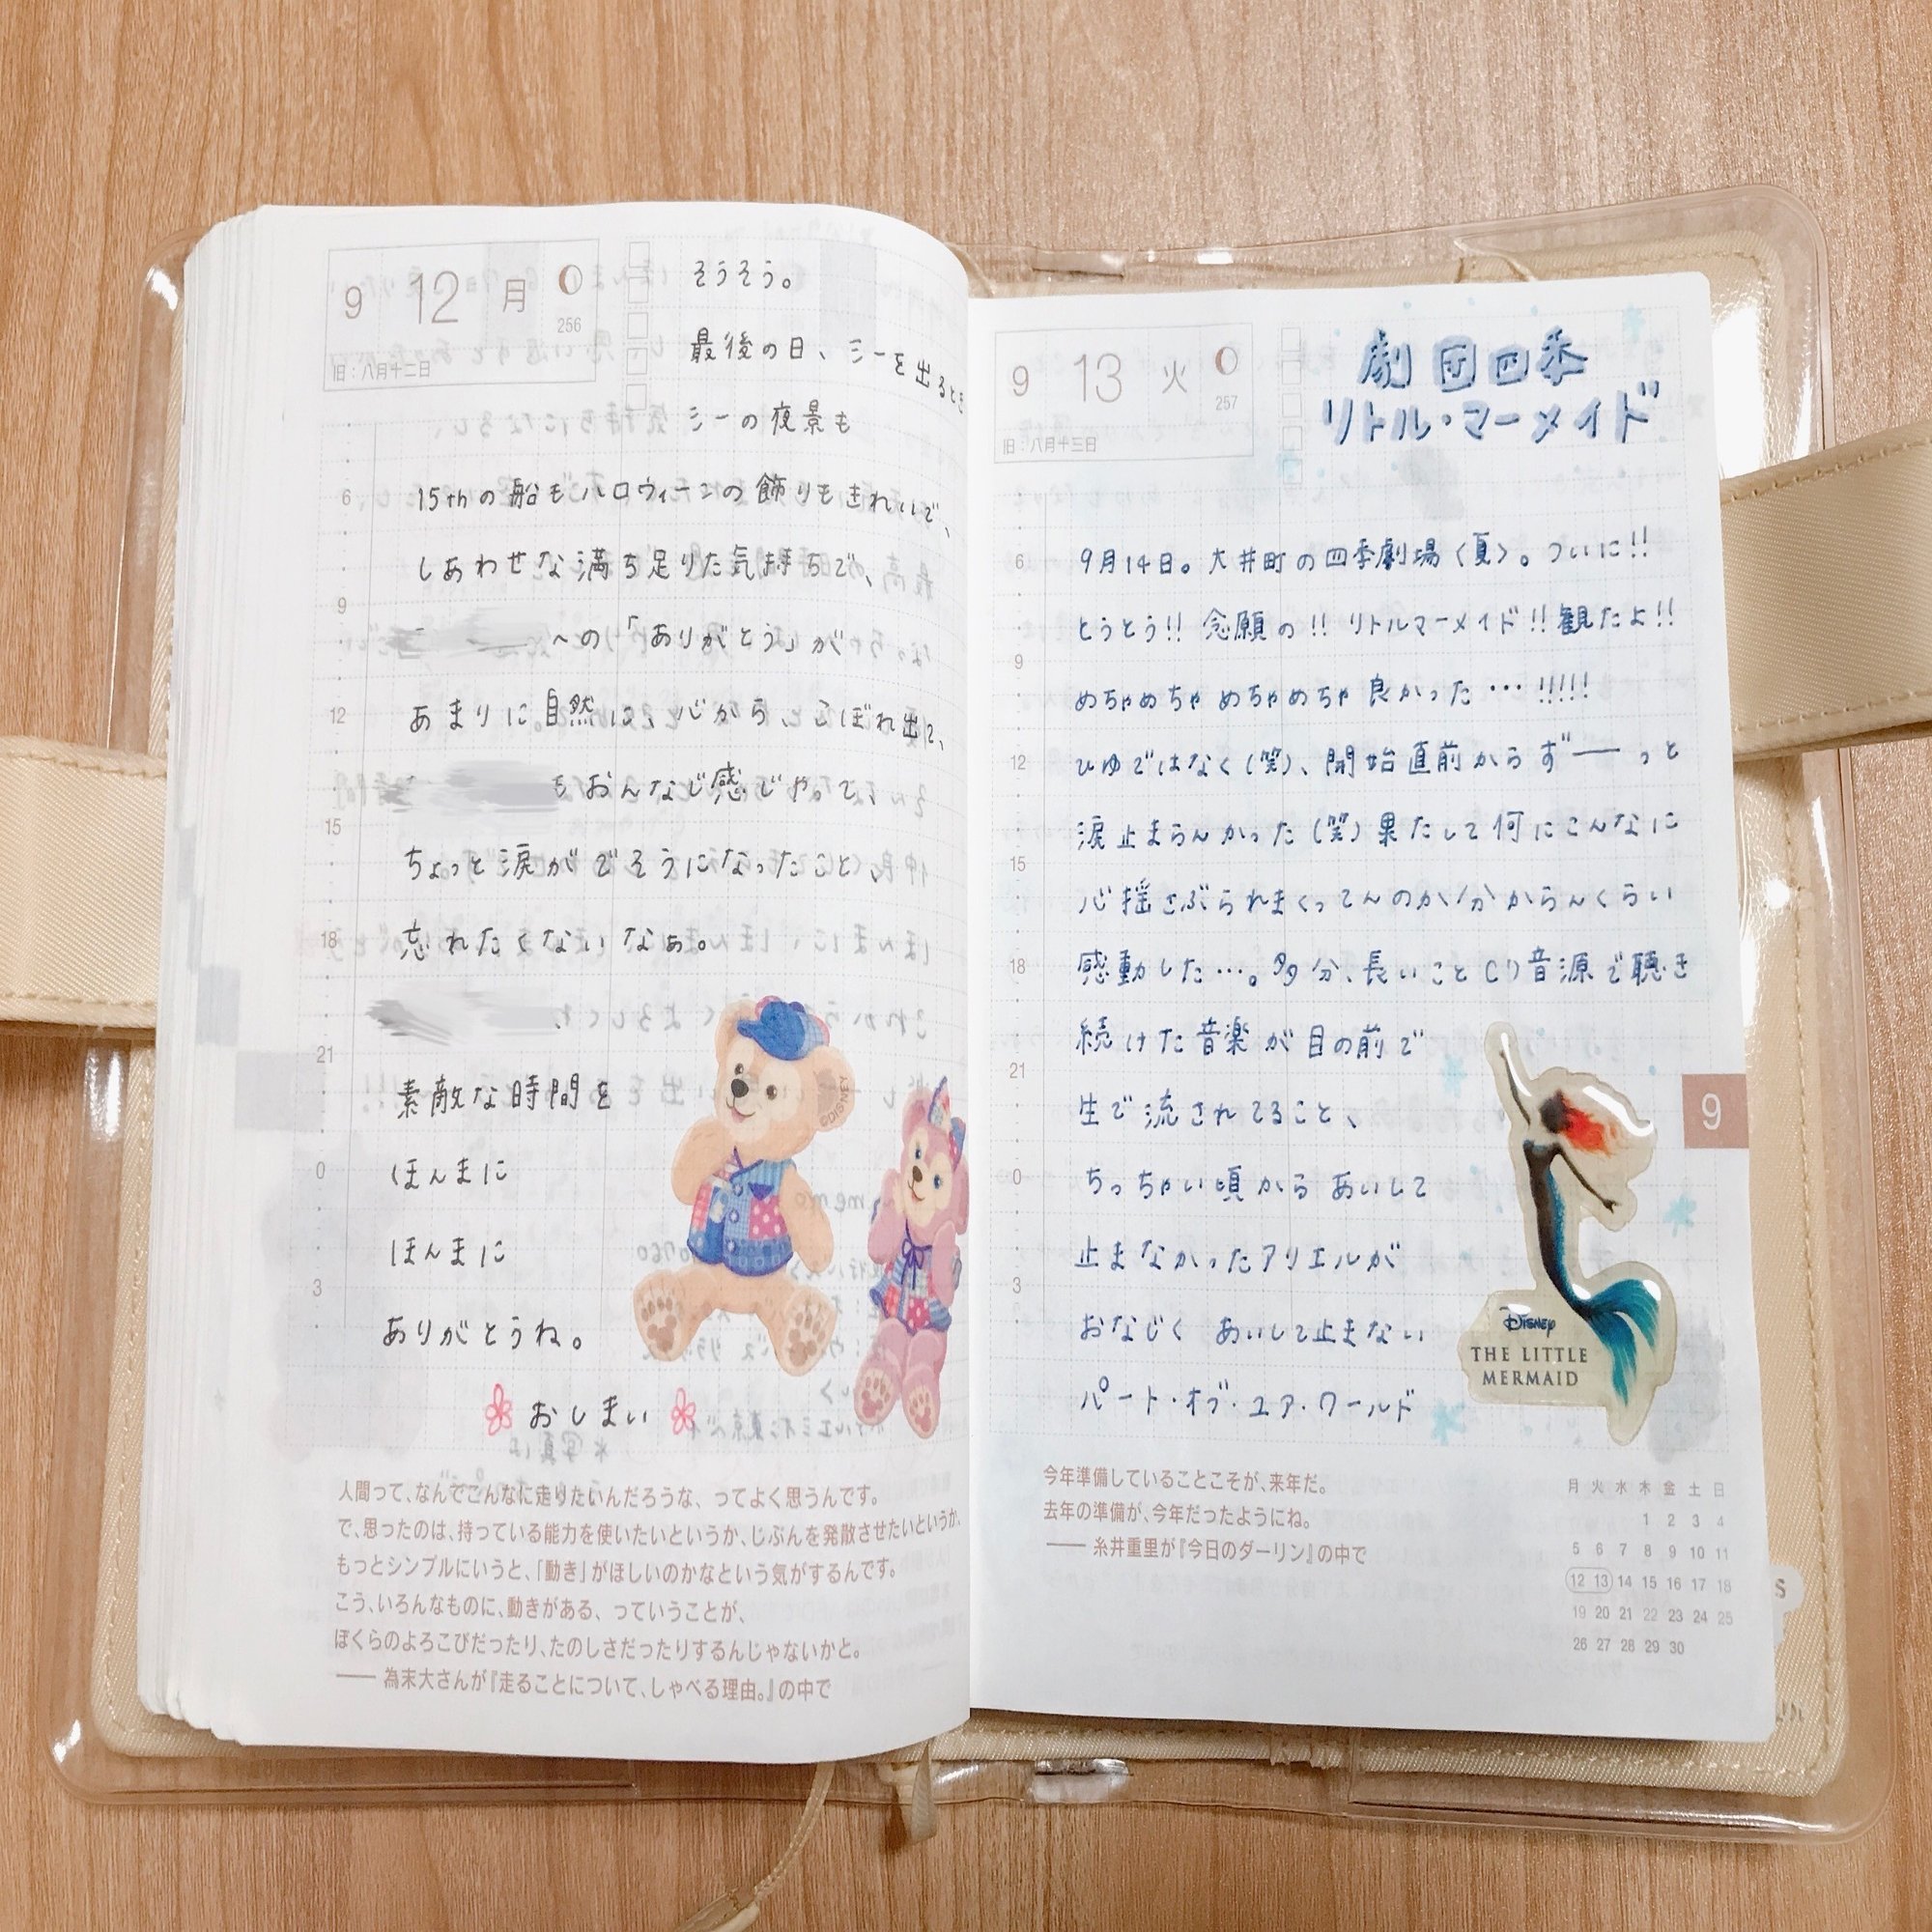 9 12 月
256
旧：八月十二日
そうそう。
最後の日、シーを出るとき
シーの夜景も
15thの船もハロウィーンの飾りもきれいで、
しあわせな満ち足りた気持ちで、
への「ありがとう」が
あまりに自然に、心から、こぼれ出て、
もおんなじ感じやって、
ちょっと涙がでそうになったこと、
忘れたくないなぁ。
素敵な時間を
ほんまに
ほんまに
ありがとうね。
おしまい
6
9
12
15
18
21
0
3
人間って、なんでこんなに走りたいんだろうな、ってよく思うんです。
で、思ったのは、持っている能力を使いたいというか、じぶんを発散させたいというか、
もっとシンプルにいうと、「動き」がほしいのかなという気がするんです。
こう、いろんなものに、動きがある、っていうことが、
ぼくらのよろこびだったり、たのしさだったりするんじゃないかと。
―― 為末大さんが『走ることについて、しゃべる理由。』の中で
9 13 火
257
旧：八月十三日
劇団四季
リトル・マーメイド
9月14日。大井町の四季劇場〈夏〉。ついに!!
とうとう!! 念願の!! リトルマーメイド!! 観たよ!!
めちゃめちゃ めちゃめちゃ 良かった…!!!!!
ひゆではなく(笑)、開始直前からず゛――っと
涙止まらんかった(笑)果たして何にこんなに
心揺さぶられまくってんのか分からんくらい
感動した…。多分、長いことCD音源で聴き
続けた音楽が目の前で
生で流されてること、
ちっちゃい頃から あいして
止まなかったアリエルが
おなじく あいして止まない
パート・オブ・ユア・ワールド
6
9
12
15
18
21
0
3
Disney
THE LITTLE
MERMAID
9
今年準備していることこそが、来年だ。
去年の準備が、今年だったようにね。
―― 糸井重里が『今日のダーリン』の中で
月 火 水 木 金 土 日
1 2 3 4
5 6 7 8 9 10 11
12 13 14 15 16 17 18
19 20 21 22 23 24 25
26 27 28 29 30